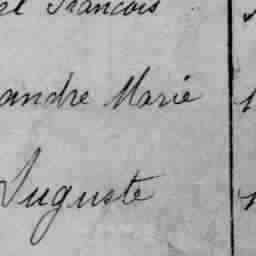 el Francois
andre Marie
Auguste